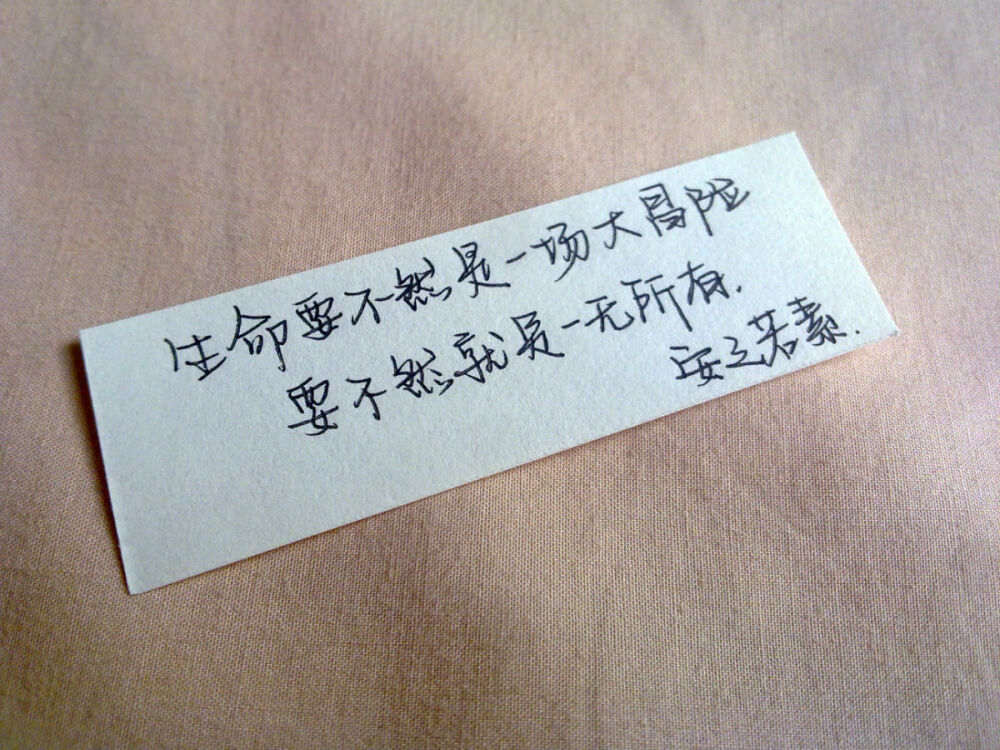 生命要不然是一场大冒险
要不然就是一无所有.
安之若素.